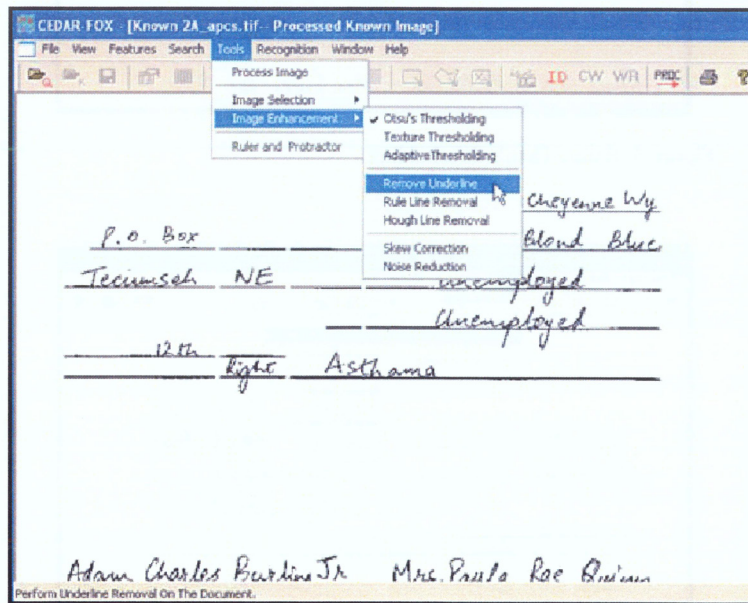 CEDAR-FOX - [Known 2A_apcs.tif-- Processed Known Image]
File View Features Search Tools Recognition Window Help
Process Image
Image Selection
Image Enhancement
Ruler and Protractor
Otsu's Thresholding
Texture Thresholding
AdaptiveThresholding
Remove Underline
Rule Line Removal
Hough Line Removal
Skew Correction
Noise Reduction
ID CW WR PROC
Cheyenne Wy
P.O. Box Blond Blue
Tecumseh NE Unemployed
Unemployed
12th
Right Asthama
Adam Charles Jr Mrs. Paula Rae Quinn
Perform Underline Removal On The Document.